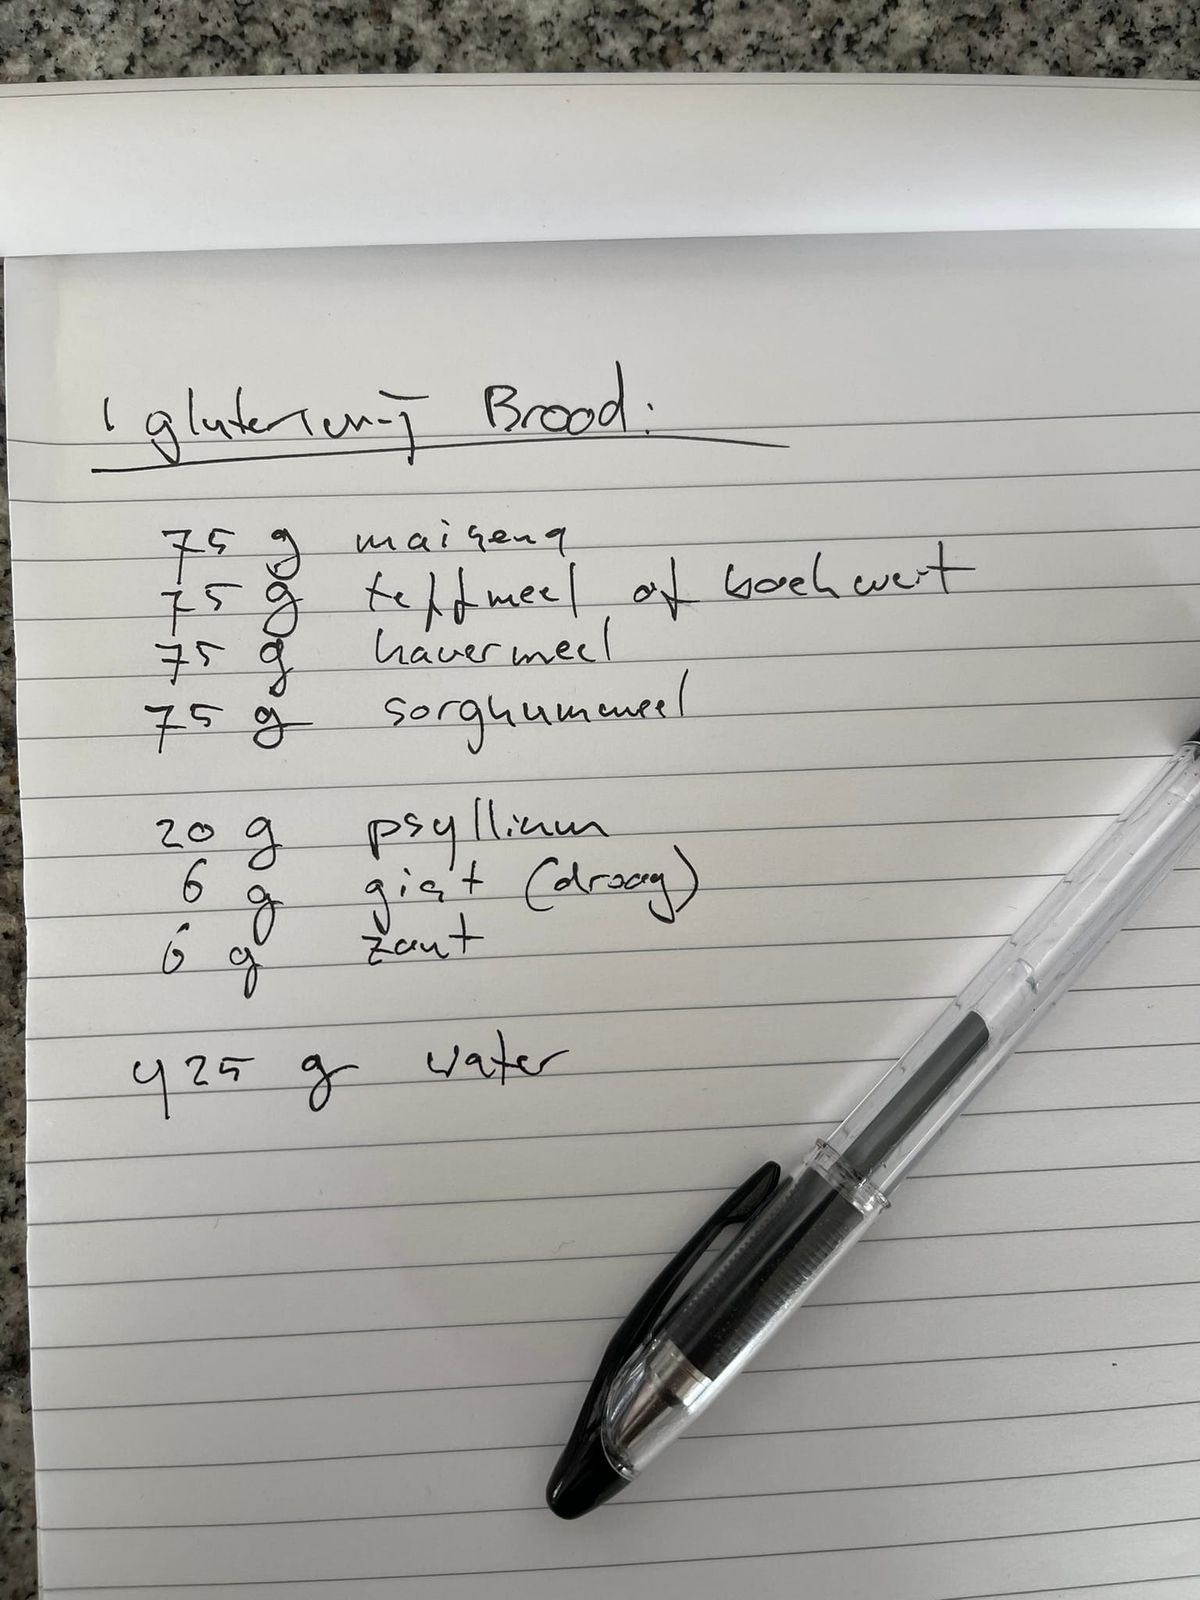 1 glutenvrij Brood:
75 g maizena
75 g teffmeel of boekweit
75 g havermeel
75 g sorghummeel
20 g psyllium
6 g gist (droog)
6 g zout
425 g water